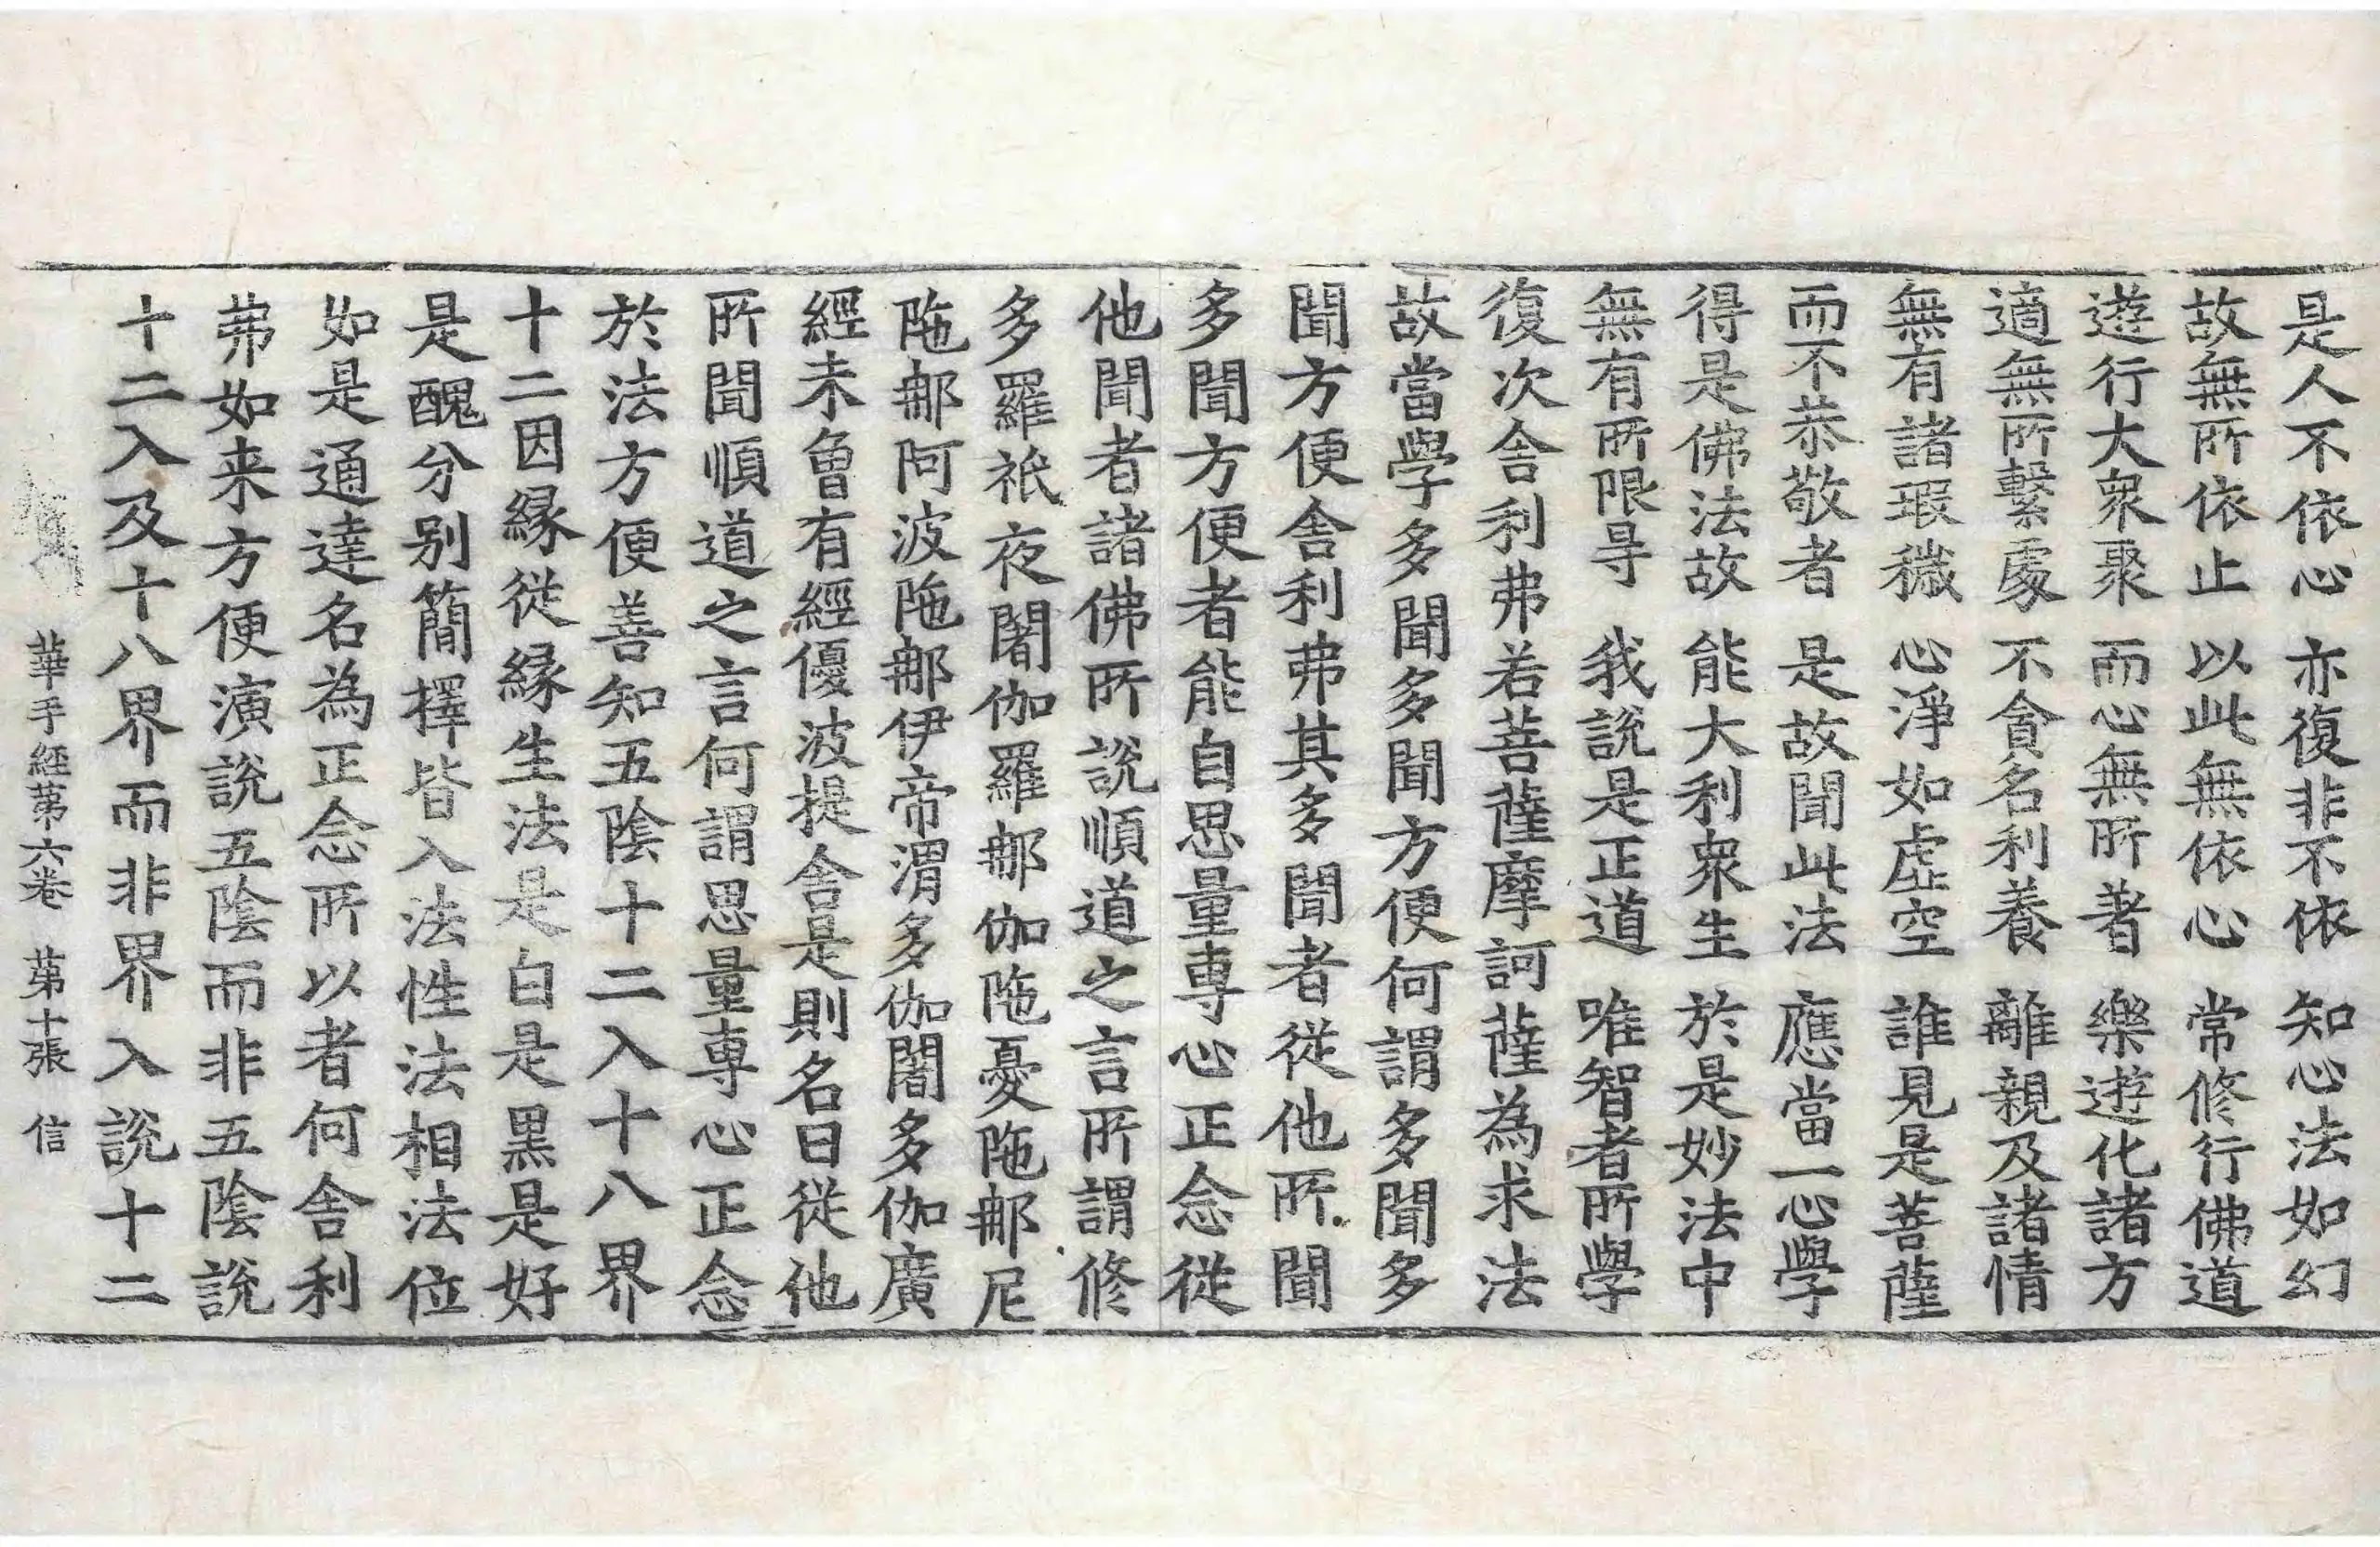 是人不依心　亦復非不依　知心法如幻
故無所依止　以此無依心　常修行佛道
遊行大衆聚　而心無所著　樂遊化諸方
適無所繫處　不貪名利養　離親及諸情
無有諸瑕穢　心淨如虛空　誰見是菩薩
而不恭敬者　是故聞此法　應當一心學
得是佛法故　能大利衆生　於是妙法中
無有所限㝵　我說是正道　唯智者所學
復次舍利弗若菩薩摩訶薩為求法
故當學多聞多聞方便何謂多聞多
聞方便舍利弗其多聞者從他所聞
多聞方便者能自思量專心正念從
他聞者諸佛所說順道之言所謂修
多羅祇夜闍伽羅那伽陁憂陁那尼
陁那阿波陁那伊帝渭多伽闍多伽廣
經未曾有經優波提舍是則名曰從他
所聞順道之言何謂思量專心正念
於法方便善知五陰十二入十八界
十二因緣從緣生法是白是黑是好
是醜分别簡擇皆入法性法相法位
如是通達名為正念所以者何舍利
弗如来方便演說五陰而非五陰說
十二入及十八界而非界入說十二
華手経第六卷　第十張　信